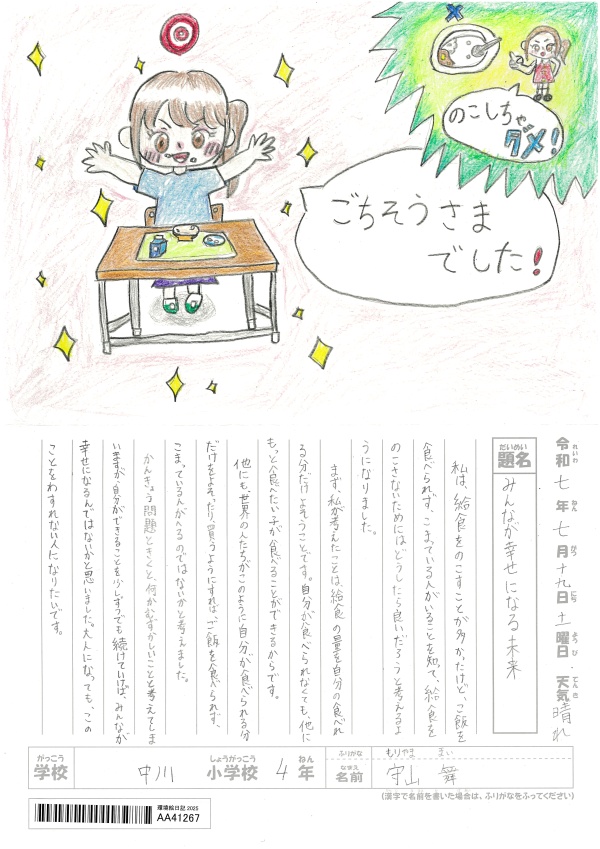 のこしちゃ
ダメ!
ごちそうさま
でした!
令和七年七月十九日土曜日 天気晴れ
れいわ ねん がつ にち ようび てんき
だいめい
題名
みんなが幸せになる未来
私は、給食をのこすことが多かったけど、ご飯を
食べられず、こまっている人がいることを知って、給食を
のこさないためにはどうしたら良いだろうと考えるよ
うになりました。
まず、私が考えたことは、給食の量を自分の食べれ
る分だけよそうことです。自分が食べられなくても、他に
もっと食べたい子が食べることができるからです。
他にも、世界の人たちがこのように自分が食べられる分
だけをよそったり、買うようにすれば、ご飯を食べられず、
こまっている人がへるのではないかと考えました。
かんきょう問題ときくと、何かむずかしいことと考えてしま
いますが、自分ができることを少しずつでも続けていけば、みんなが
幸せになるんではないかと思いました。大人になっても、この
ことをわすれない人になりたいです。
がっこう
学校
中川
しょうがっこう
小学校
4
ねん
年
ふりがな
もりやま まい
なまえ
名前
守山 舞
(漢字で名前を書いた場合は、ふりがなをふってください)
環境絵日記2025
AA41267